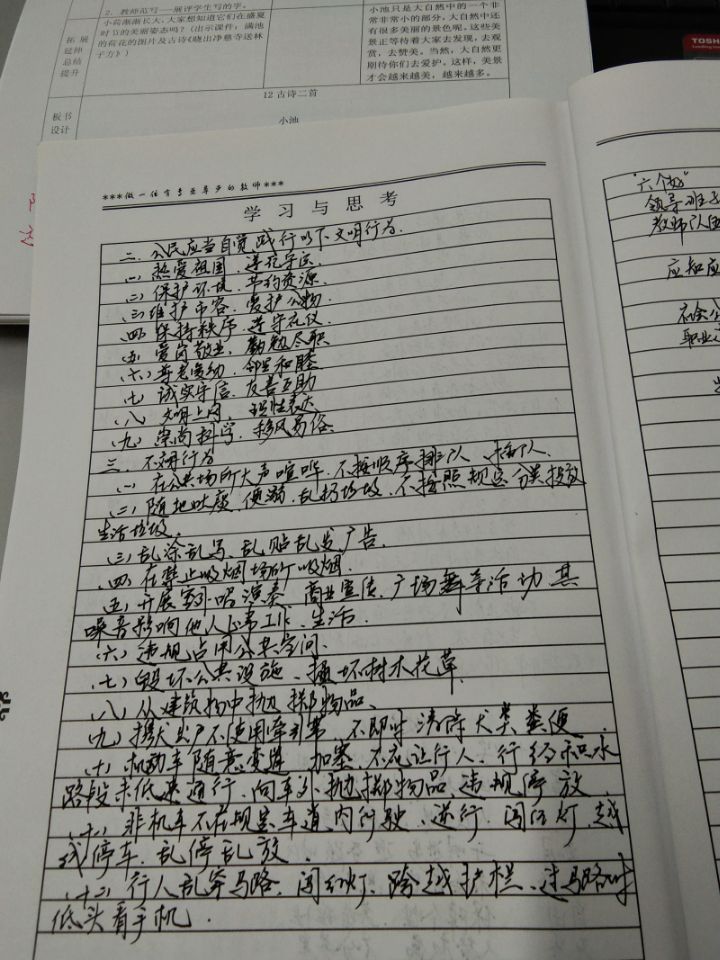 2. 教师范写—展评学生写的字。
小荷渐渐长大,大家想知道它们在盛夏
时节的美丽姿态吗?(出示课件:满池
的荷花的图片及古诗《晓出净慈寺送林
子方》)
拓展
延伸
总结
提升
小池只是大自然中的一个非
常非常小的部分。大自然中还
有很多美丽的景色呢。这些美
景正等待着大家去发现,去观
赏,去赞美。当然,大自然更
期待你们去爱护。这样,美景
才会越来越美,越来越多。
板书
设计
12 古诗二首
小池
TOSH
***做一位有责任尊严的教师***
学习与思考
二、公民应当自觉践行以下文明行为.
(一) 热爱祖国、遵纪守法
(二) 保护环境、节约资源
(三) 维护市容、爱护公物
(四) 保持秩序、遵守礼仪
(五) 爱岗敬业、勤勉尽职
(六) 尊老爱幼、邻里和睦
(七) 诚实守信、友善互助
(八) 文明上网、理性表达
(九) 崇尚科学、移风易俗
三、不文明行为
(一) 在公共场所大声喧哗、不按顺序排队、插队
(二) 随地吐痰、便溺、乱扔垃圾、不按照规定分类投放
生活垃圾.
(三) 乱涂乱写、乱贴乱发广告.
(四) 在禁止吸烟场所吸烟.
(五) 开展室外唱演奏、商业宣传、广场舞等活动其
噪音影响他人正常工作、生活.
(六) 违规占用公共空间.
(七) 毁坏公共设施、损坏树木花草.
(八) 从建筑物中抛掷物品.
(九) 携犬出户不使用牵引带、不即时清除犬类粪便.
(十) 机动车随意变道、加塞、不礼让行人、行经积水
路段未低速通行、向车外抛掷物品、违规停放.
(十一) 非机车不在规定车道内行驶、逆行、闯红灯、越
线停车、乱停乱放.
(十二) 行人乱穿马路、闯红灯、跨越护栏、过马路时
低头看手机.
“六个好”
领导班子
教师队伍
应知应
社会公
职业